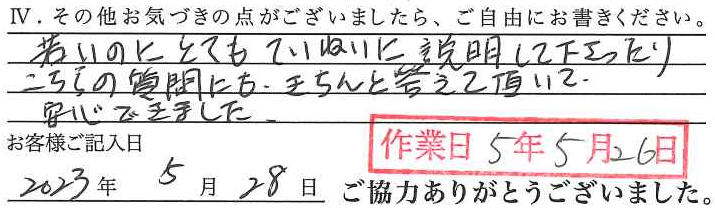 Ⅳ．その他お気づきの点がございましたら、ご自由にお書きください。
若いのにとてもていねいに説明して下さったり
こちらの質問にも、きちんと答えて頂いて、
安心できました。
お客様ご記入日
作業日 5年5月26日
2023年 5月28日 ご協力ありがとうございました。